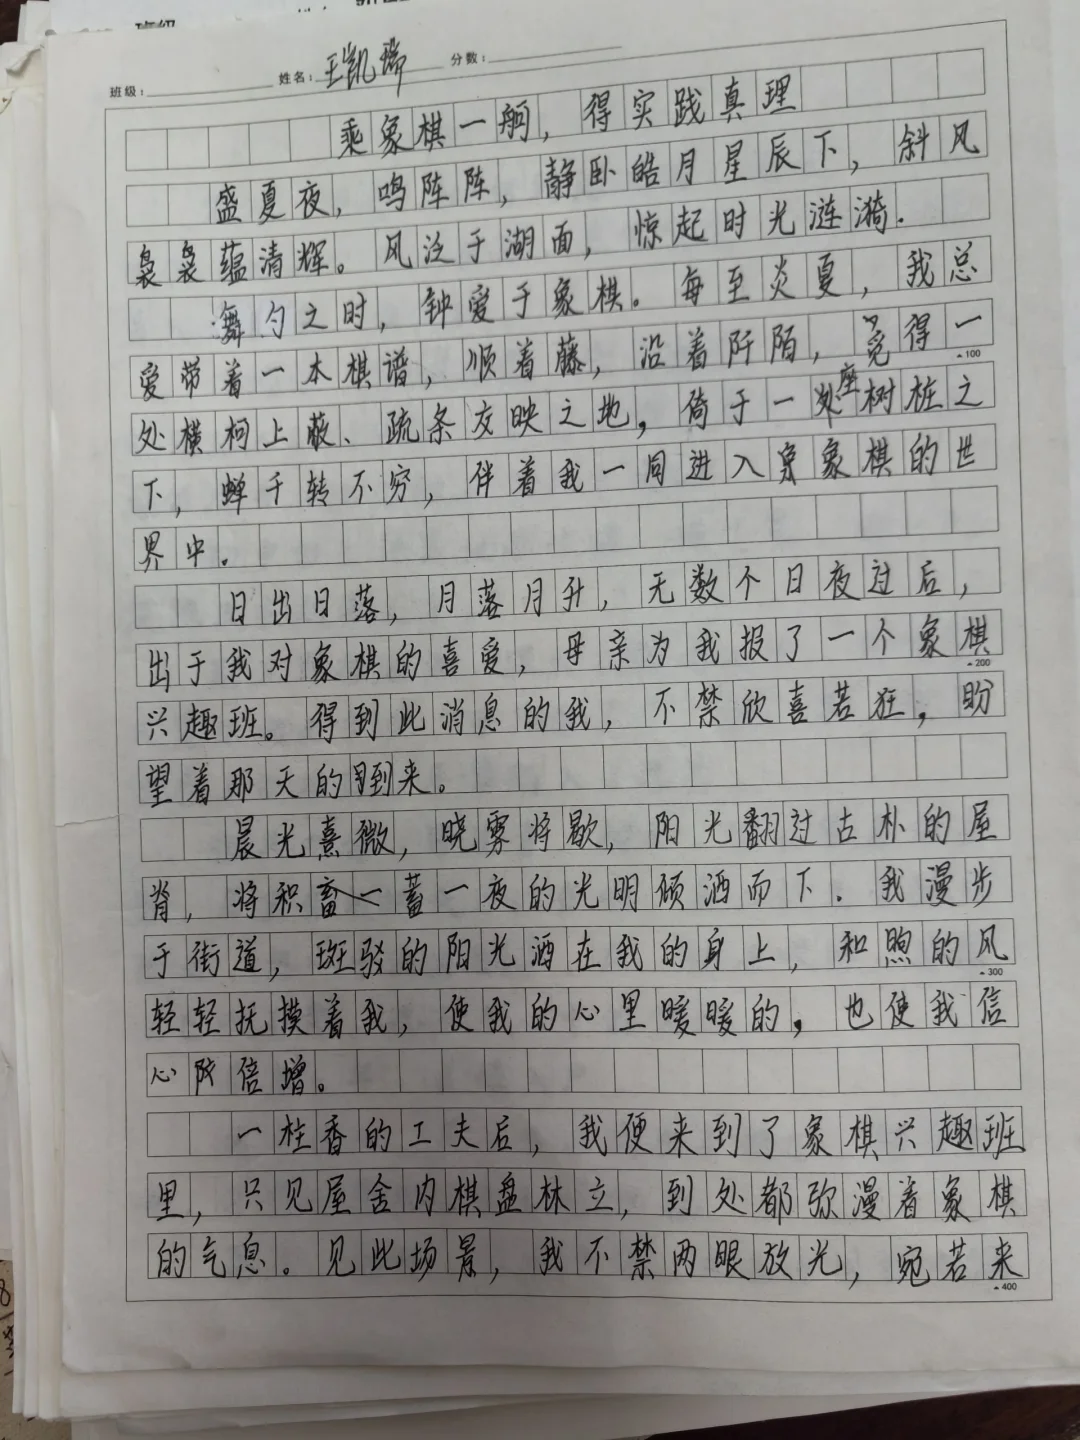 班级：
姓名：王凯瑞
分数：
乘象棋一舸，得实践真理
盛夏夜，鸣阵阵，静卧皓月星辰下，斜风
袅袅蕴清辉。风泛于湖面，惊起时光涟漪．
舞勺之时，钟爱于象棋。每至炎夏，我总
爱带着一本棋谱，顺着藤，沿着阡陌，觅得一
处横柯上蔽、疏条交映之地，倚于一座树桩之
下，蝉千转不穷，伴着我一同进入象棋的世
界中。
日出日落，月落月升，无数个日夜过后，
出于我对象棋的喜爱，母亲为我报了一个象棋
兴趣班。得到此消息的我，不禁欣喜若狂，盼
望着那天的到来。
晨光熹微，晓雾将歇，阳光翻过古朴的屋
脊，将积蓄一夜的光明倾洒而下．我漫步
于街道，斑驳的阳光洒在我的身上，和煦的风
轻轻抚摸着我，使我的心里暖暖的，也使我信
心倍增。
一柱香的工夫后，我便来到了象棋兴趣班
里，只见屋舍内棋盘林立，到处都弥漫着象棋
的气息。见此场景，我不禁两眼放光，宛若来
100
200
300
400